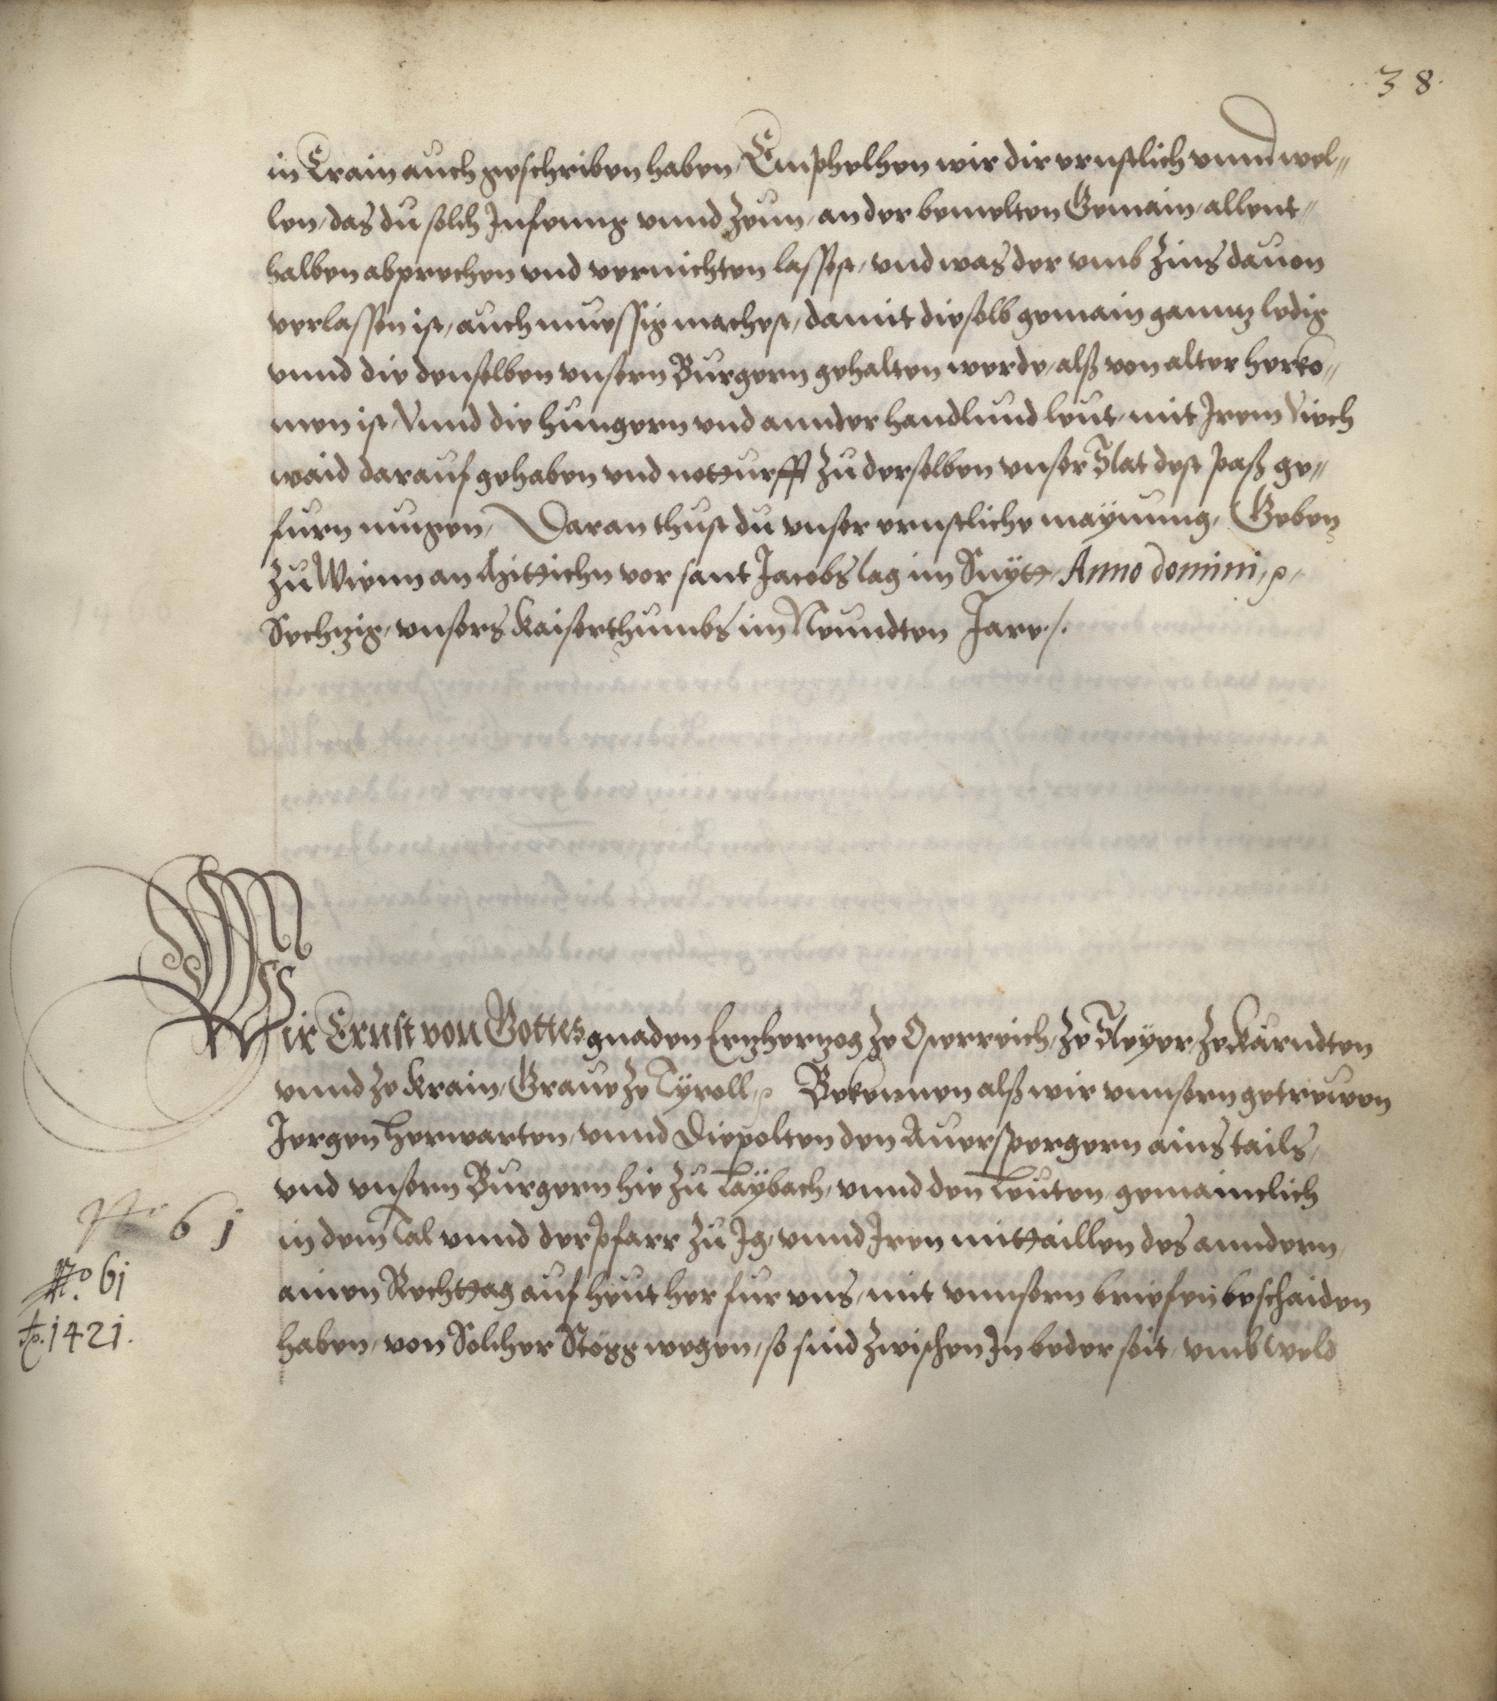 38.
in Crain auch geschriben haben, Emphelhen wir dir ernstlich vnnd wel//
len, das du solch Infenng vnnd Zeun, an der bemelten Gemain, allent//
halben abprechen vnd vernichten lassest, vnd was der vmb Zins dauon
verlassen ist, auch muessig machest, damit dieselb gemain ganntz ledig
vnnd die denselben vnsern Burgern gehalten werde, alß von alter herko//
men ist, Vnnd die Hungern vnd annder handlund leut, mit Irem Viech
waid darauf gehaben vnd notturfft zu derselben vnser Stat dest paß ge//
furn mugen, Daran thust du vnser ernstliche maÿnung, Geben
zu Wienn an Mittichn vor sant Jacobs tag im Snÿtt, Anno domini,
Sechtzig, vnsers Kaiserthumbs im Neundten Jare./.
Wir Ernst von Gottes gnaden Ertzhertzog ze Osterreich, ze Steyer ze Kärndten
vnnd ze Krain, Graue ze Tÿroll, Bekennen alß wir vnnsern getrewen
Jorgen Herwarten, vnnd Diepolten den Auerspergern ains tails,
vnd vnsern Burgern hie zu Laÿbach, vnnd den Leuten gemainclich
in dem Tal vnnd der Pfarr zu Ig, vnnd Iren mittaillen des anndern,
ainen Rechttag auf heut her fur vns, mit vnnsern briefen beschaiden
haben, von Solcher Stözz wegen, so sind zwischen In beder seit, vmb Veld
No 61
No. 61
1421.